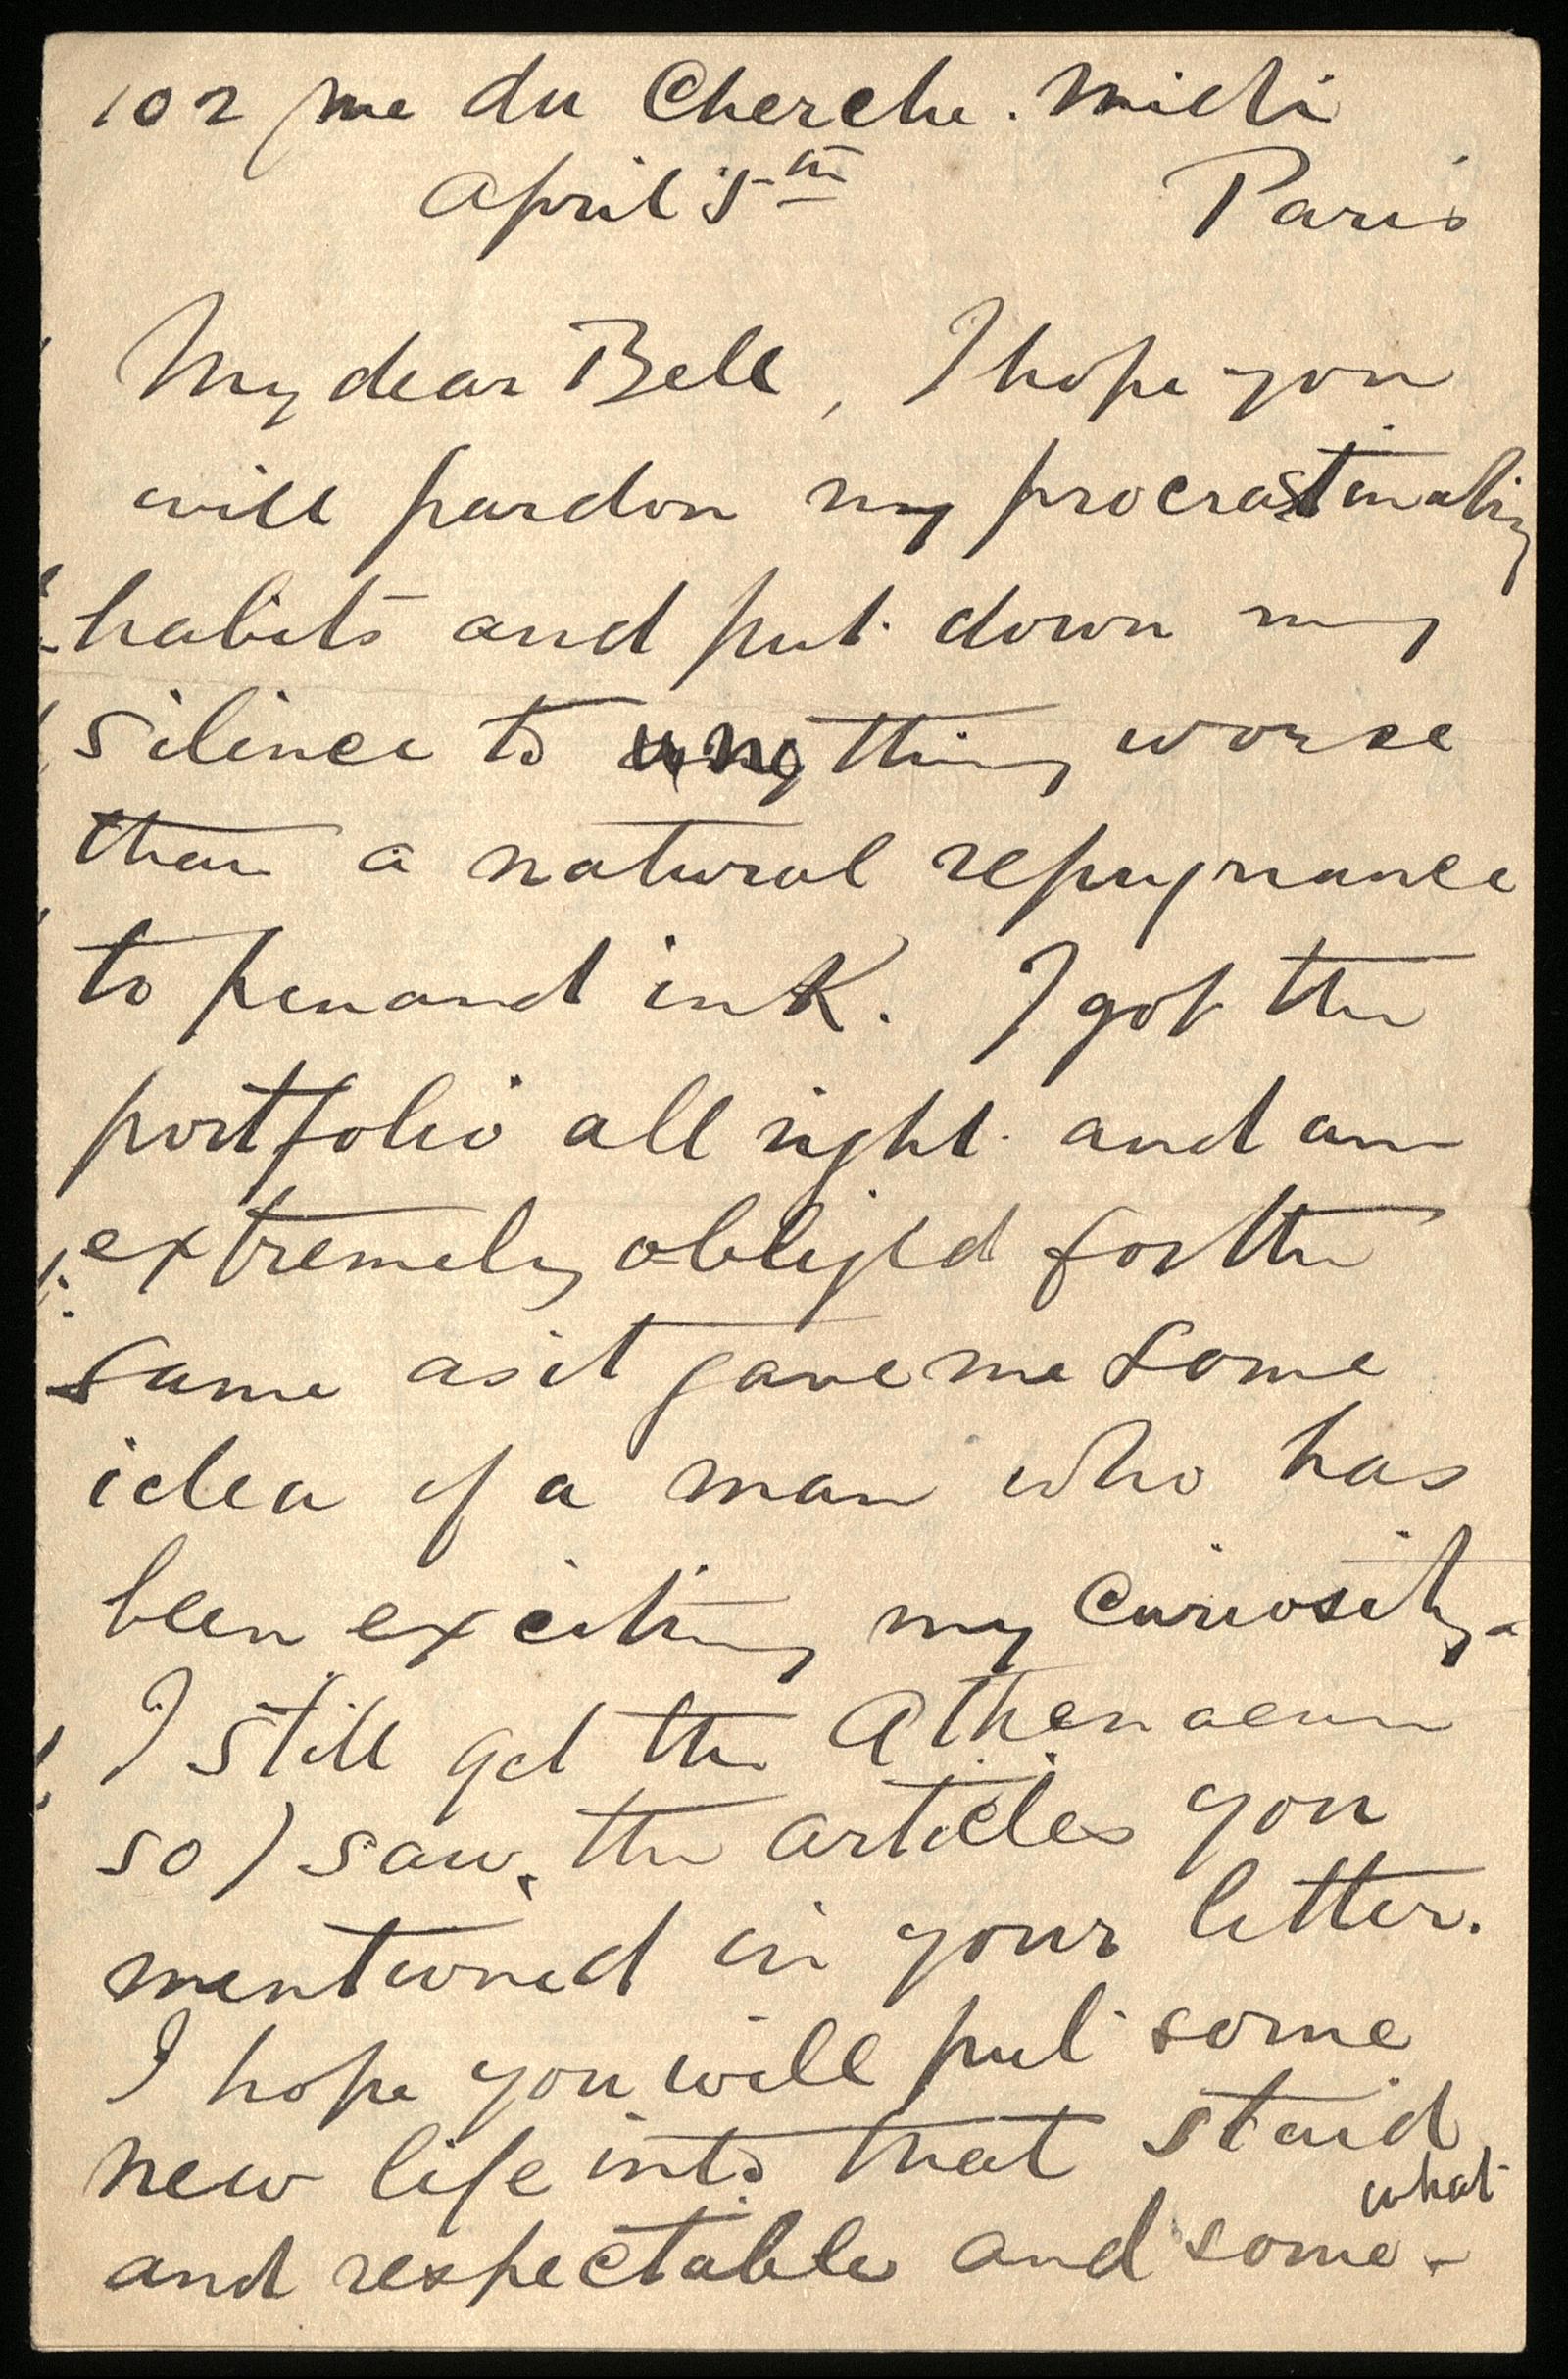 102 rue du Cherche. Midi
April 5th Paris
My dear Bell, I hope you
will pardon my procrastinating
habits and put down my
silence to anything worse
than a natural repugnance
to pen and ink. I got the
portfolio all right and am
extremely obliged for the
same as it gave me some
idea of a man who has
been exciting my curiosity.
I still get the Athenaeum
so I saw the articles you
mentioned in your letter.
I hope you will put some
new life into that staid
and respectable and some-what